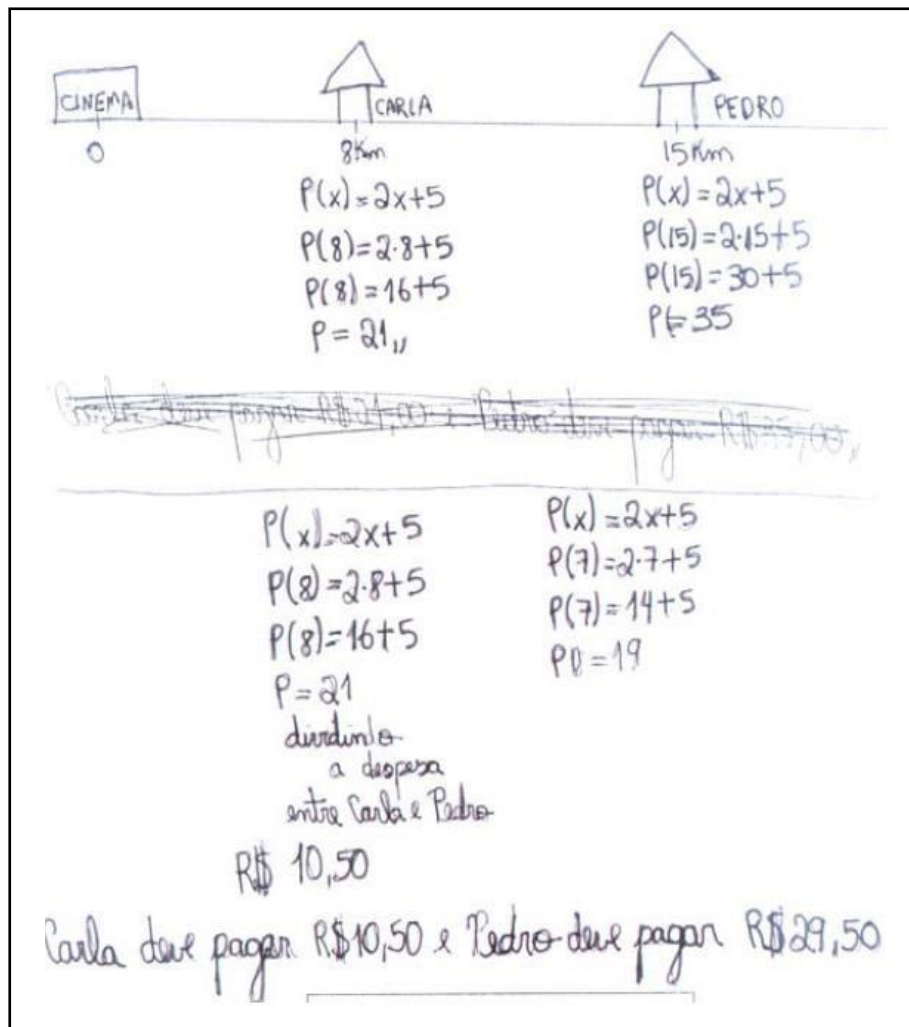 CINEMA
CARLA
PEDRO
0
8Km
15Km
P(x)=2x+5
P(8)=2·8+5
P(8)=16+5
P=21,,
P(x)=2x+5
P(15)=2·15+5
P(15)=30+5
P=35
deve pagar R$ 21,00 e Pedro deve pagar R$ 35,00,,
P(x)=2x+5
P(8)=2·8+5
P(8)=16+5
P=21
dividindo
a despesa
entre Carla e Pedro
R$ 10,50
P(x)=2x+5
P(7)=2·7+5
P(7)=14+5
P=19
Carla deve pagar R$10,50 e Pedro deve pagar R$29,50